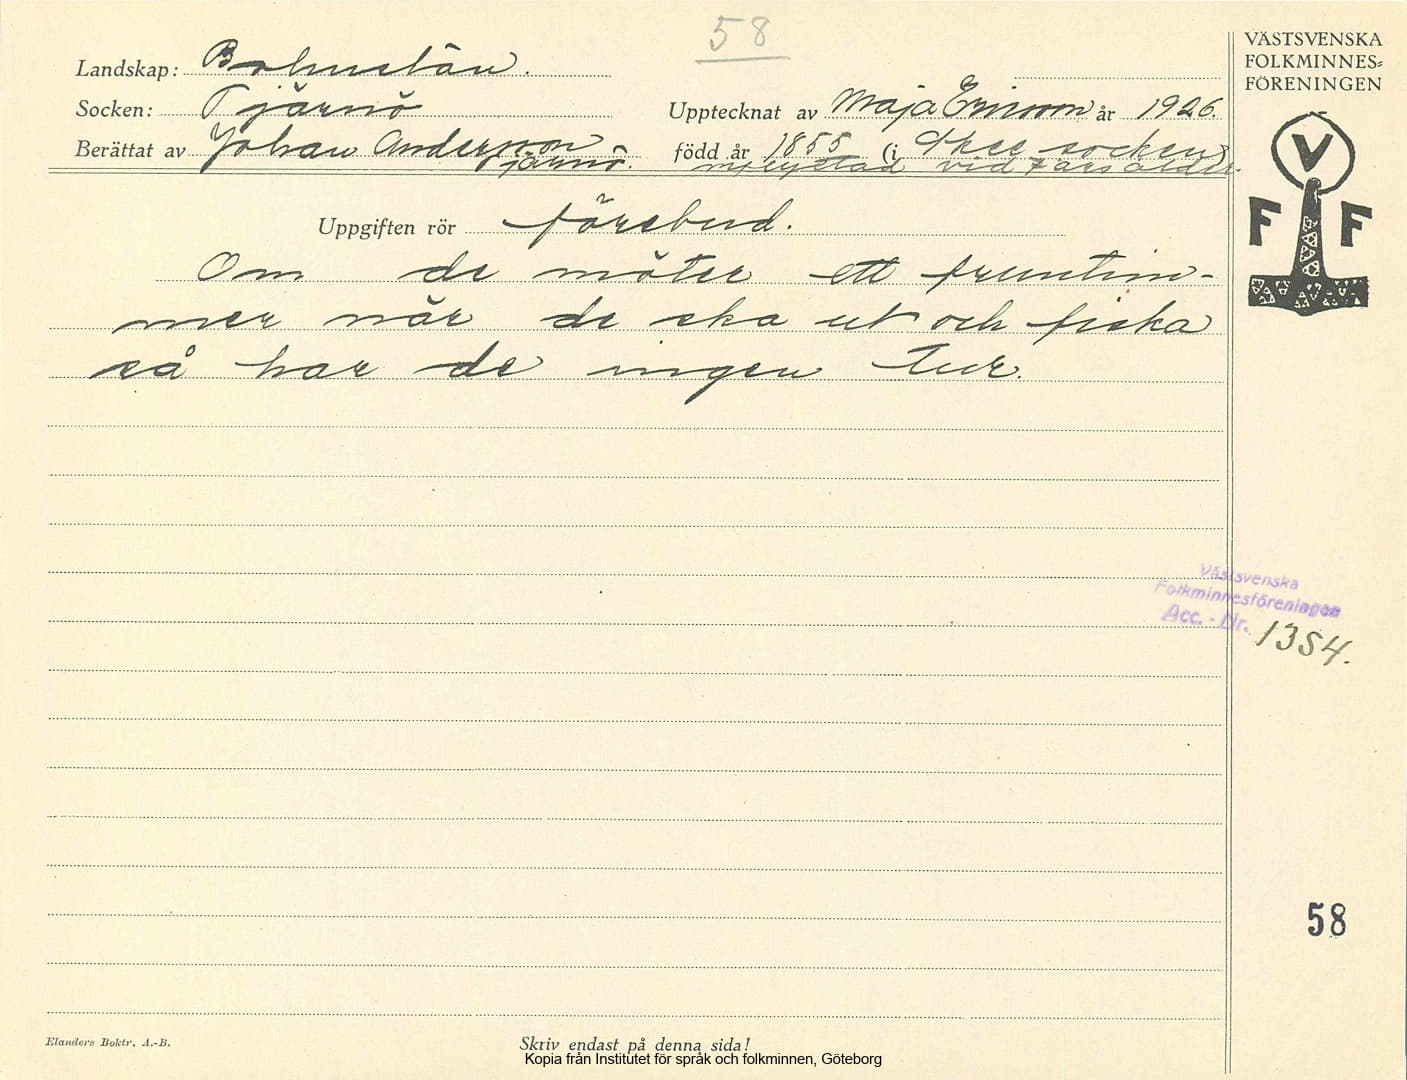 58
VÄSTSVENSKA
FOLKMINNES=
FÖRENINGEN
Landskap: Bohuslän.
Socken: Tjärnö
Upptecknat av Maja Ericson år 1926.
Berättat av Johan Anderson
Tjärnö.
född år 1855 (i Skee socken)
inflyttad vid 7 års ålder.
V
F F
Uppgiften rör förebud.
Om de möter ett fruntim-
mer när de ska ut och fiska
så har de ingen tur.
Västsvenska
Folkminnesföreningen
Acc. - Nr. 1354.
58
Elanders Boktr. A.-B.
Skriv endast på denna sida!
Kopia från Institutet för språk och folkminnen, Göteborg